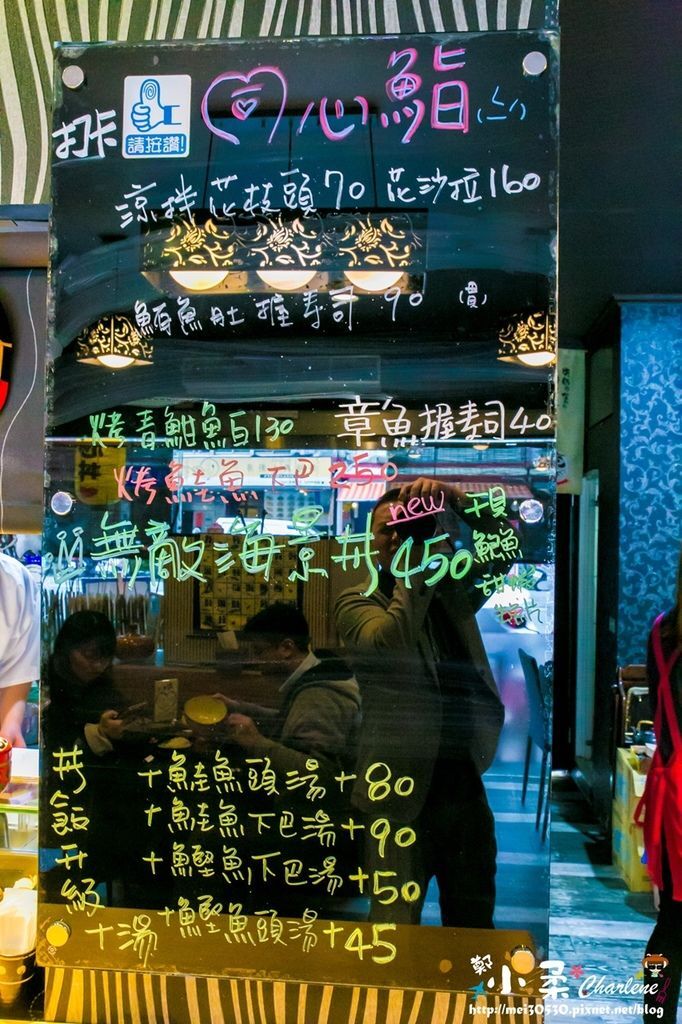 同心鮨
打卡
請按讚!
涼拌花枝頭70 花沙拉160
鮪魚肚握壽司90 (貴)
烤青魽魚白130 章魚握壽司40
烤鮭魚下巴250
new
無敵海景丼450
干貝
鮑魚
甜蝦
丼飯升級+湯
+鮭魚頭湯+80
+鮭魚下巴湯+90
+鰹魚下巴湯+50
+鰹魚頭湯+45
鄭小柔 Charlene
http://mei30530.pixnet.net/blog